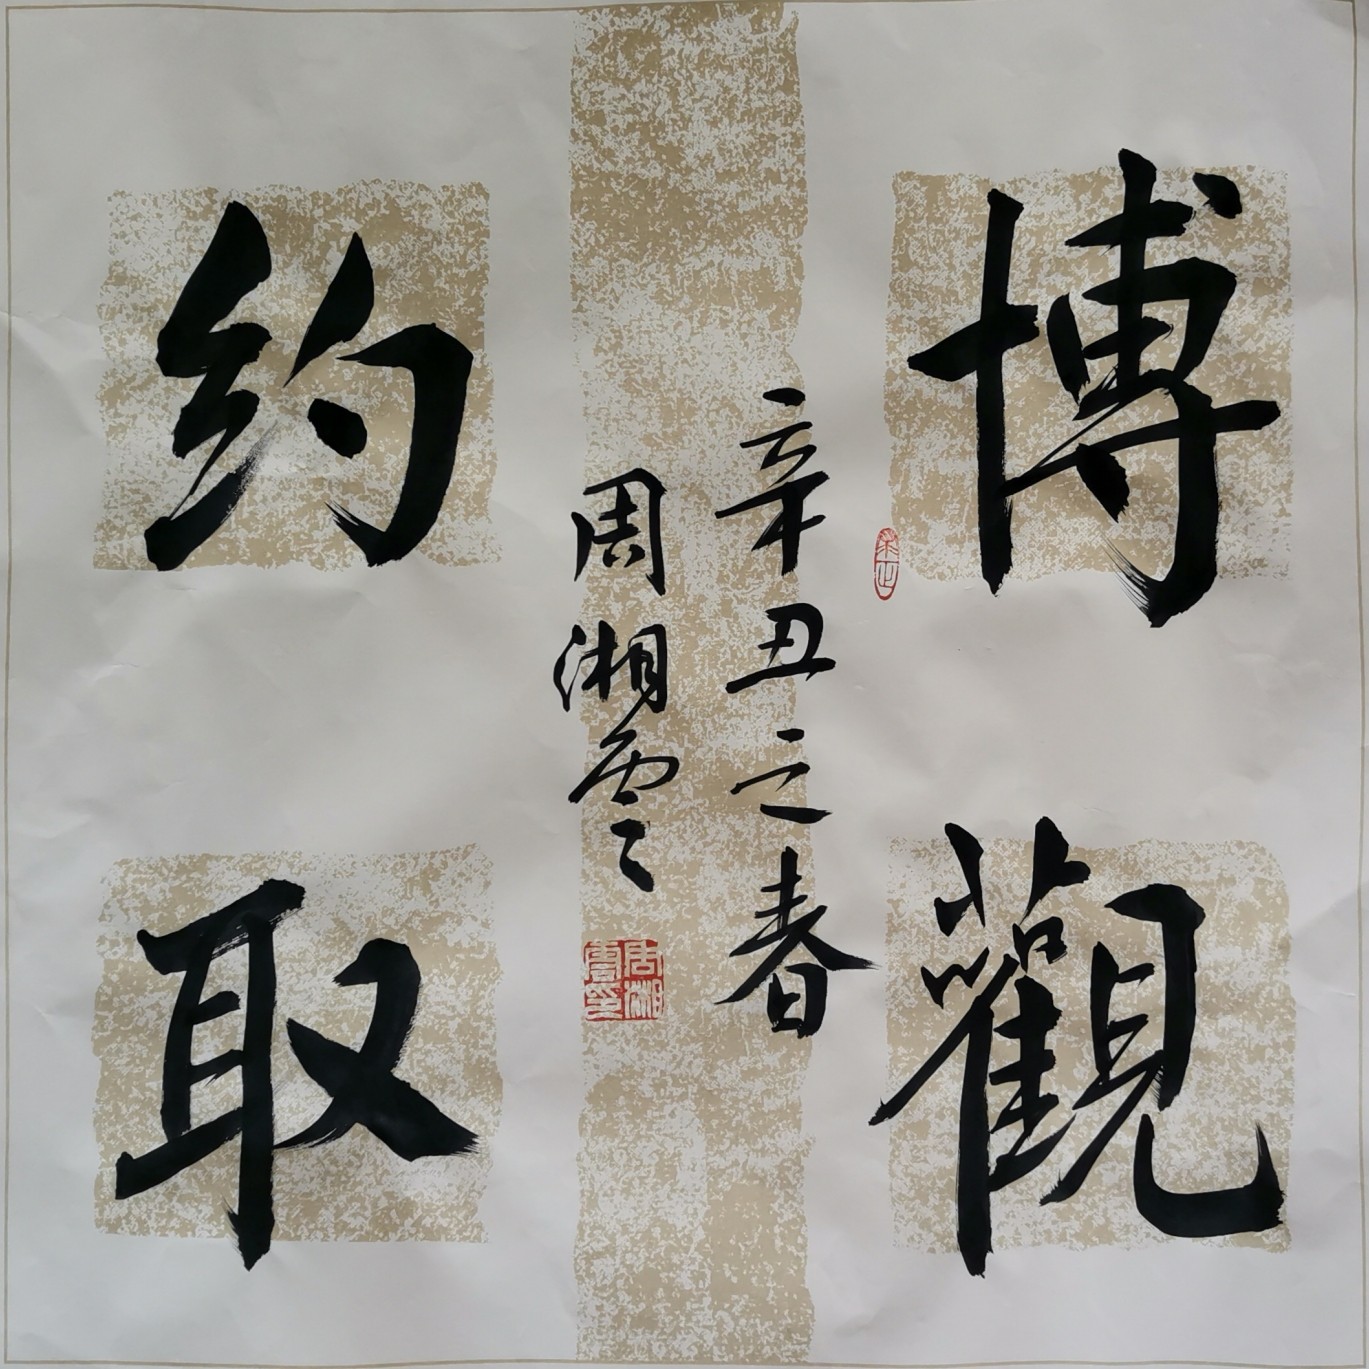 博觀
約取
辛丑之春
周湘雲
周湘雲印